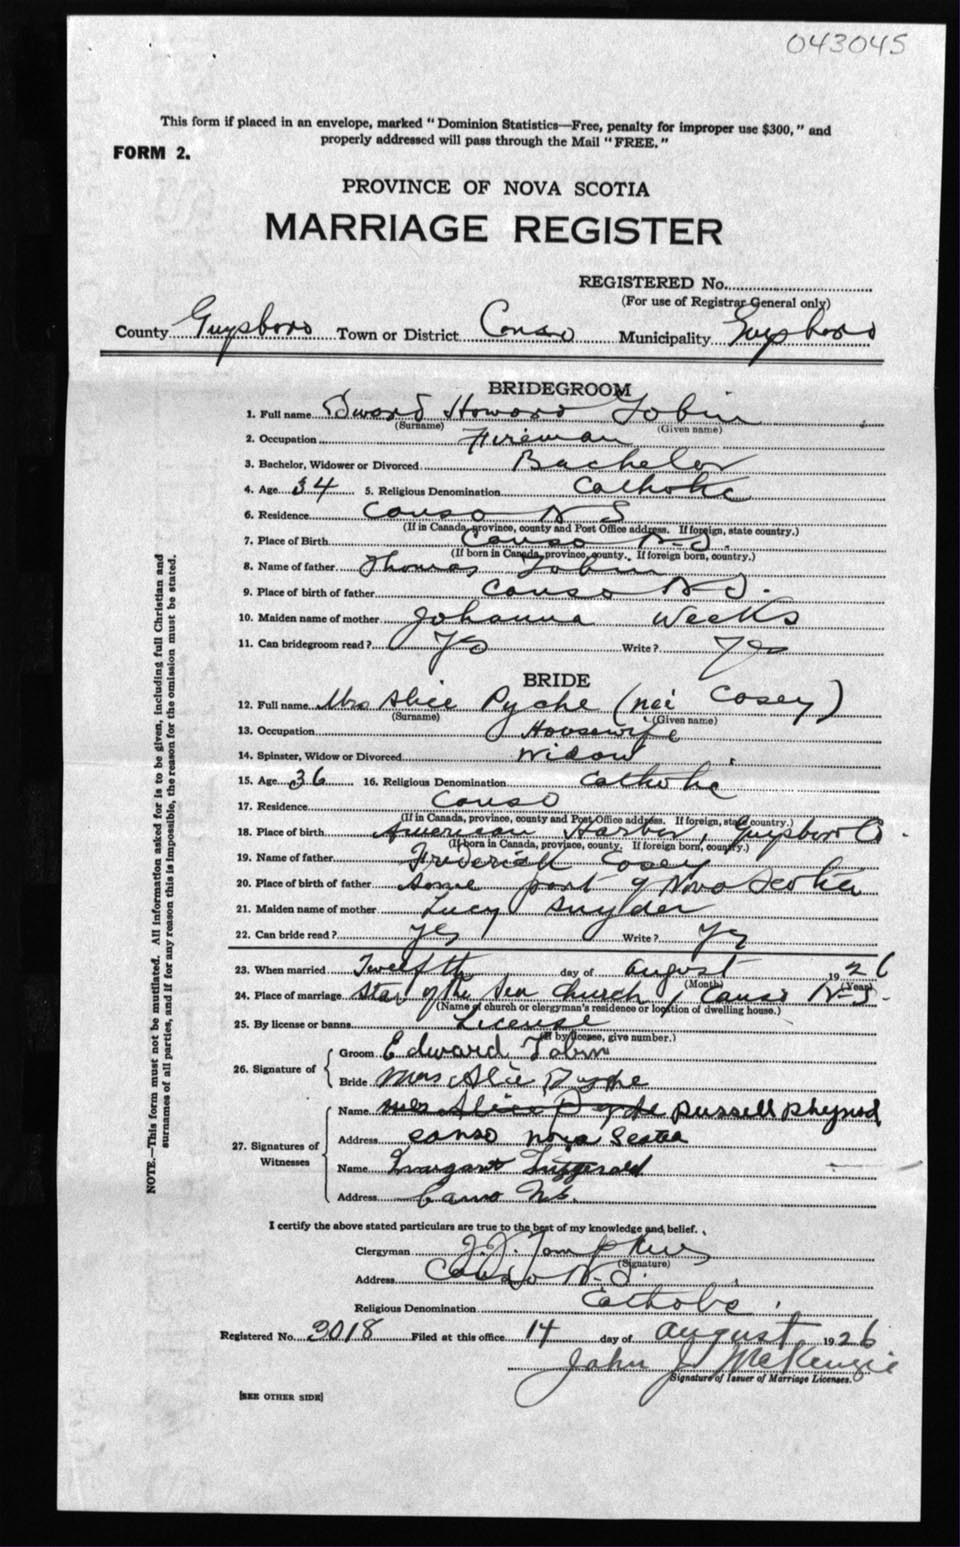 043045
This form if placed in an envelope, marked "Dominion Statistics—Free, penalty for improper use $300," and
properly addressed will pass through the Mail "FREE."
FORM 2.
PROVINCE OF NOVA SCOTIA
MARRIAGE REGISTER
REGISTERED No.
(For use of Registrar General only)
County Guysboro Town or District Canso Municipality Guysboro
BRIDEGROOM
1. Full name Edward Howard Tobin
(Surname) (Given name)
2. Occupation Fireman
3. Bachelor, Widower or Divorced Bachelor
4. Age 34 5. Religious Denomination Catholic
6. Residence Canso N S
(If in Canada, province, county and Post Office address. If foreign, state country.)
7. Place of Birth Canso N-S.
(If born in Canada, province, county. If foreign born, country.)
8. Name of father Thomas Tobin
9. Place of birth of father Canso N S.
10. Maiden name of mother Johanna Weeks
11. Can bridegroom read? Yes Write? Yes
BRIDE
12. Full name Mrs Alice Pyche (nei Casey)
(Surname) (Given name)
13. Occupation Housewife
14. Spinster, Widow or Divorced Widow
15. Age 36 16. Religious Denomination Catholic
17. Residence Canso
(If in Canada, province, county and Post Office address. If foreign, state country.)
18. Place of birth American Harbor, Guysboro Co.
(If born in Canada, province, county. If foreign born, country.)
19. Name of father Frederick Casey
20. Place of birth of father Some part of Nova Scotia
21. Maiden name of mother Lucy Snyder
22. Can bride read? Yes Write? Yes
23. When married Twelfth day of August 1926
(Month) (Year)
24. Place of marriage Star of the Sea Church, Canso N-S.
(Name of church or clergyman's residence or location of dwelling house.)
25. By license or banns License
(If by license, give number.)
26. Signature of
Groom Edward Tobin
Bride Mrs Alice Pyche
27. Signatures of Witnesses
Name Mrs Alice Pyche Russell Rhynod
Address Canso Nova Scotia
Name Margaret Fitzgerald
Address Canso N.S.
I certify the above stated particulars are true to the best of my knowledge and belief.
Clergyman J. J. Tompkins
(Signature)
Address Canso N.S.
Religious Denomination Catholic.
Registered No. 3018 Filed at this office 14 day of August 1926
John J McKenzie
Signature of Issuer of Marriage Licenses.
[SEE OTHER SIDE]
NOTE.—This form must not be mutilated. All information asked for is to be given, including full Christian and
surnames of all parties, and if for any reason this is impossible, the reason for the omission must be stated.